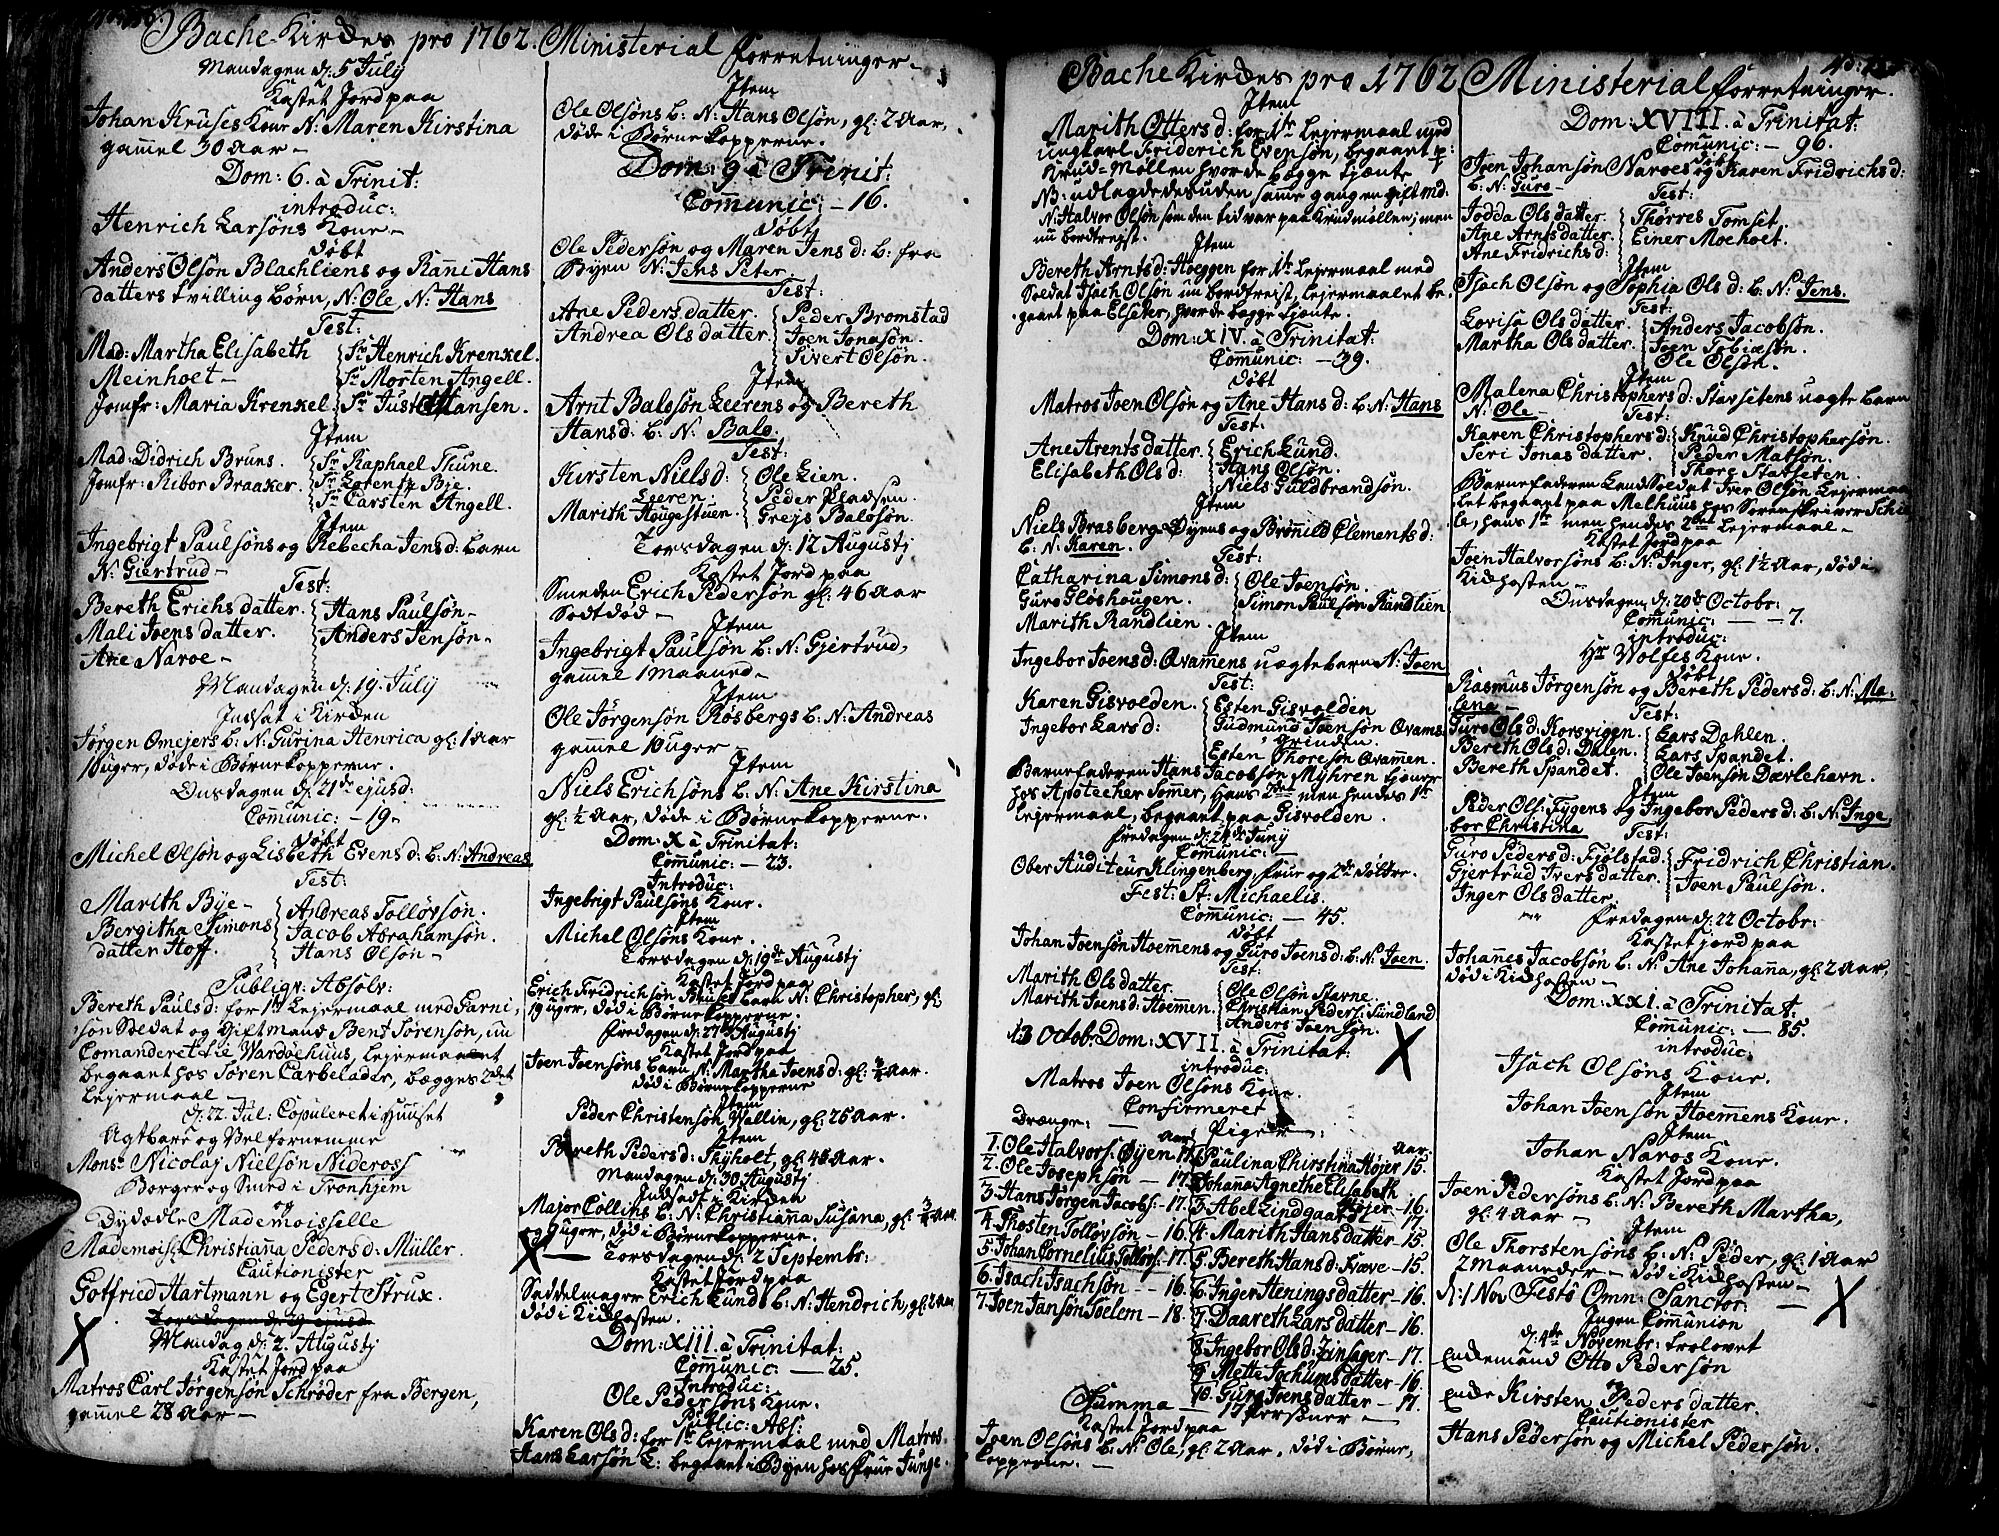 Bache Kirches pro 1762. Ministerial Forretninger.
Mandagen d: 5 July
Kastet Jord paa
Johan Kruses Kone N: Maren Kirstina
gammel 30 Aar -
Dom: 6. à Trinit:
introduc:
Henrich Larsøns Kone -
Døbt
Anders Olsøn Blachliens og Ranni Hans
datters tvilling børn, N: Ole, N: Hans
Test:
Mad: Martha Elisabeth
Meinhoet -
Jomfr: Maria Krenkel
Sr Henrich Krenkel.
Sr Morten Angell.
Sr Just Hansen.
Item
Mad: Didrich Bruns.
Jomfr: Ribor Braaker.
Sr Raphael Thune.
Sr Lorentz Bye.
Sr Carsten Angell.
Item
Ingebrigt Paulsøns og Rebecha Jens d: barn
N: Giertrud -
Test:
Bereth Erichs datter.
Mali Joens datter.
Ane Naroe -
Hans Paulsøn -
Anders Jensøn -
Mandagen d: 19. July
Indsat i Kirchen
Jørgen Omejers b: N: Gurina Henrica gl: 1 Aar
10 uger, døde i Børnekopperne.
Onsdagen d: 21de ejusd:
Comunic: - 19 -
Døbt
Michel Olsøn og Lisbeth Evens d: b: N: Andreas
Test:
Marith Bye -
Bergitha Simons
datter Hoff.
Andreas Tolløvsøn.
Jacob Abrahamsøn.
Hans Olsøn -
Publiqv: Absolv:
Bereth Pauls d: for 1te Lejermaal med Garni-
søn Soldat og Giftmand Bent Sørensøn, nu
Comanderet til Wardøehuus, Lejermaalet
begaaet hos Søren Carbelader, begges 2det
Lejermaal -
d: 22. Jul: Copuleret i Huuset
Agtbare og Velfornemme
Monsr Nicolaj Nielsøn Nideross
Borger og Smed i Tronhjem
og
Dydædle Mademoisselle
Mademoisle Christianna Peders d: Müller.
Cautionister
Gotfried Hartmann og Egert Strux.
Torsdagen d: 29 ejusd
Mandag d: 2. Augustj
Kastet Jord paa
Matros Carl Jørgensøn Schrøder fra Bergen,
gammel 28 Aar -
Item
Ole Olsøns b: N: Hans Olsøn, gl: 2 Aar,
døde i Børnekopperne.
Dom: 9 à Trinit:
Comunic: - 16.
Døbt
Ole Pedersøn og Maren Jens d: b: fra
Byen N: Jens Peter.
Test:
Ane Peders datter.
Andrea Ols datter
Peder Bromstad
Joen Jonasøn.
Sivert Olsøn.
Item
Arnt Balosøn Leerens og Bereth
Hans d: b: N: Balo.
Test:
Kirsten Niels d:
Leeren.
Marith Høugestuen.
Ole Lien.
Peder Pladsen.
Grejs Balosøn.
Torsdagen d: 12 Augustj
Kastet Jord paa
Smeden Erich Pedersøn gl: 46 Aar
Sodt død -
Item
Ingebrigt Paulsøn b: N: Gjertrud,
gammel 1 Maaned -
Item
Ole Jørgensøn Røsbergs b: N: Andreas
gammel 10 uger -
Item
Niels Erichsøns b: N: Ane Kirstina
gl: ½ Aar, døde i Børnekopperne.
Dom: X à Trinitat:
Comunic: - 23.
Introduc:
Ingebrigt Paulsøns Kone.
Item
Michel Olsøns Kone.
Torsdagen d: 19de Augustj
Kastet Jord paa
Erich Fridrichsøn barn N: Christopher, gl:
19 uger, død i Børnekopperne.
Fredagen d: 27de Augustj
Kastet Jord paa
Joen Joensøns barn N: Martha Joens d: gl: ¾ Aar.
død i Børnekopperne
Item
Peder Christensøn Wellin, gl: 26 Aar.
Item
Bereth Peders d: Thyholt, gl: 48 Aar.
Mandagen d: 30 Augustj
Indsadt i Kirchen
Major Collins b: N: Christianna Susana, gl: ¾ Aar
og 9 uger, død i Børnekopperne.
Torsdagen d: 2 Septembr:
Kastet Jord paa
Saddelmager Erich Lunds b: N: Hendrich, gl: 2 Aar
død i Kichosten.
Dom: XIII à Trinitat:
Comunic: - 25.
Introduc:
Ole Pedersøns Kone.
Public: Abs:
Karen Ols d: for 1te Lejermaal med Matros
Hans Larsøn L: begaaet i Byen hos Frue Junge.
Bache Kirches pro 1762 Ministerial Forretninger.
Item
Marith Otters d: for 1te Lejermaal med
ungkarl Friderich Evensøn, begaaet p:
Krud-Møllen hvor de begge tjænte
NB: udlagde desuden samme gangen gift md.
N: Halvor Olsøn som den tid var paa Krudmøllen; men
nu bortreist.
Item
Bereth Arnts d: Hoeggen for 1te Lejermaal med
Soldat Isach Olsøn nu bortreist, Lejermaalet be-
gaaet paa Elseter, hvor de begge tjænte.
Dom: XIV. à Trinitat:
Comunic: - 39.
Døbt
Matros Joen Olsøn og Ane Hans d: b: N: Hans
Test:
Ane Arents datter.
Elisabeth Ols d:
Erich Lund.
Hans Olsøn.
Niels Guldbrandsøn.
Item
Niels Brasberg Øyens og Brønnild Clements d:
b: N: Karen.
Test:
Catharina Simons d:
Guro Gløshougen.
Marith Randlien.
Ole Joensøn.
Simon Paulsøn Randlien
Item
Ingebor Joens d: Qvammens uægte barn N: Joen
Test:
Karen Gisvolden.
Ingebor Lars d:
Esten Gisvolden
Gudmund Joensøn Qvams
grinden.
Esten Thoresøn Qvammen.
Barnefaderen Hans Jacobsøn Myhren tjener
hos Apothecher Sommer, Hans 2det men hendes 1te
Lejermaal, begaaet paa Gisvolden.
Fredagen d: 24de Juny
Comunic: -
Ober Auditeur Klingenberg, Frue og 2de døttre.
Fest: St: Michaelis.
Comunic: - 45.
Døbt
Johan Joensøn Hoemmens og Guro Joens d: b: N: Joen.
Test:
Marith Ols datter.
Marith Joens d: Hoemmen.
Ole Olsøn Starne.
Christian Peders: Sundland
Anders Joensøn.
d: 3 Octobr: Dom: XVII. à Trinitat:
introduc:
Matros Joen Olsøns Kone.
Confirmeret
Drænge: -
Aar:
1. Ole Halvors: Øyen 17.
2. Ole Josephsøn - 17.
3. Hans Jørgen Jacobs: - 17.
4. Thosten Tolløvsøn - 16.
5. Johan Cornelius Tollofs: 17.
6. Isach Isachsøn - 16.
7. Joen Jansøn Soelem - 18.
Piger:
Aar:
1. Paulina Chirstina Højer 15.
2. Johanna Agnethe Elisabeth
Højer - 16.
3. Abel Lindgaard - 17
4. Marith Hans datter - 15.
5. Bereth Hans d: Kvæve - 15.
6. Inger Henings datter - 16.
7. Daareth Lars datter - 16.
8. Ingebor Ols d: Zinsager - 17.
9. Mette Jochums datter - 16.
10. Guro Joens datter - 17.
Summa - 17 Persohner -
Kastet Jord paa
Joen Olsøns b: N: Ole, gl: 2 Aar. død i Børne,
Kopperne. -
Dom: XVIII. à Trinitat:
Comunic: - 96.
Døbt
Joen Johansøn Naroes og Karen Fridrichs d:
b: N: Guro -
Test:
Jodda Ols datter.
Ane Arnts datter.
Ane Fridrichs d:
Thørres Tomset.
Einer Moeholt.
Item
Isach Olsøn og Sophia Ols d: b: N: Jens.
Test:
Lovisa Ols datter.
Martha Ols datter.
Anders Jacobsøn.
Joen Tobiasøn.
Ole Olsøn.
Item
Malena Christophers d: Stavsetens uægte barn
N: Ole -
Test:
Karen Christophers d:
Seri Jonas datter.
Knud Christophersøn.
Peder Matsøn.
Thore Stafseten.
Barnefaderen Land Soldat Iver Olsøn Lejermaa-
let begaaet paa Melhuus hos Sorenskriver Schiø
le, hans 1te men hendes 2det Lejermaal -
Kastet Jord paa
Joen Halvorsøns b: N: Inger, gl: 1½ Aar, død i
Kichosten -
Onsdagen d: 20de Octobr:
Comunic: - - 7.
introduc:
Hr Wolfes Kone.
Døbt
Rasmus Jørgensøn og Bereth Peders d: b: N: Ma-
lena -
Test:
Guro Ols d: Korsvigen.
Bereth Ols d: Dalen.
Bereth Spandet.
Lars Dahlen.
Lars Spandet.
Ole Joensøn Dævlehavn.
Item
Peder Ols: Fygens og Ingebor Peders d: b: N: Inge
bor Christina
Test:
Guro Peders d: Fjølstad.
Gjertrud Ivers datter.
Inger Ols datter.
Fridrich Christian.
Joen Paulsøn.
Fredagen d: 22 Octobr:
Kastet jord paa
Johannes Jacobsøn b: N: Ane Johanna, gl: 2 Aar,
død i Kichosten -
Dom: XXI. à Trinitat:
Comunic: - 85.
introduc:
Isach Olsøns Kone.
Item
Johan Joensøn Hoemmens Kone.
Item
Johan Naros Kone.
Kastet Jord paa
Joen Pedersøns b: N: Bereth Martha,
gl: 4 Aar -
Item
Ole Thorstensøns b: N: Peder, gl: 1 Aar
2 Maaneder - død i Kichosten -
d: 1 Nov Festo Omn: Sanctor: -
Ingen Comunion
d: 4de Novembr: trolovet
Endemand Otto Pedersøn
og
Ende Kirsten Peders datter.
Cautionister
Hans Pedersøn og Michel Pedersøn.